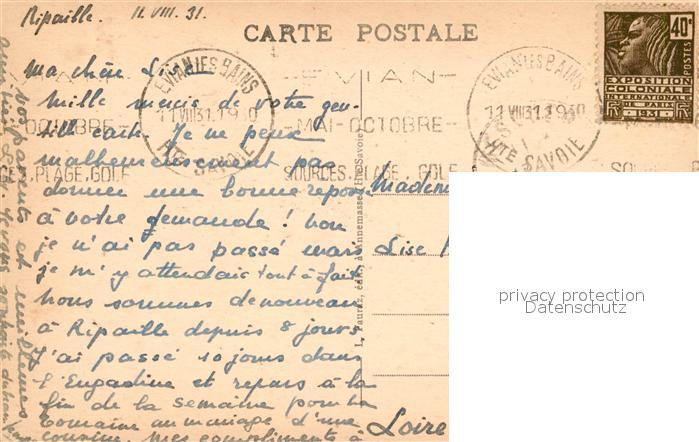 Ripaille. 11. VIII. 31.
CARTE POSTALE
40c
POSTES
EXPOSITION
COLONIALE
INTERNATIONALE
DE PARIS
1931
EVIAN LES BAINS
11 VIII 31 1930
HTE SAVOIE
EVIAN
MAI-OCTOBRE
SOURCES, PLAGE, GOLF
EVIAN LES BAINS
11 VIII 31 1930
HTE SAVOIE
OCTOBRE
CES, PLAGE, GOLF
SOUR
Ma chère Lise
Mille mercis de votre gen-
tille carte. Je ne peux
malheureusement pas
donner une bonne réponse
à votre demande ! Non
je n'ai pas passé mais
je m'y attendais tout à fait.
Nous sommes de nouveau
à Ripaille depuis 8 jours
J'ai passé 10 jours dans
l'Engadine et repars à la
fin de la semaine pour la
Romaine au mariage d'une
cousine. Mes compliments à
vos parents et
Mademoi
Lise
Loire
L. Fauraz, édit., à Annemasse, Hte-Savoie
privacy protection
Datenschutz